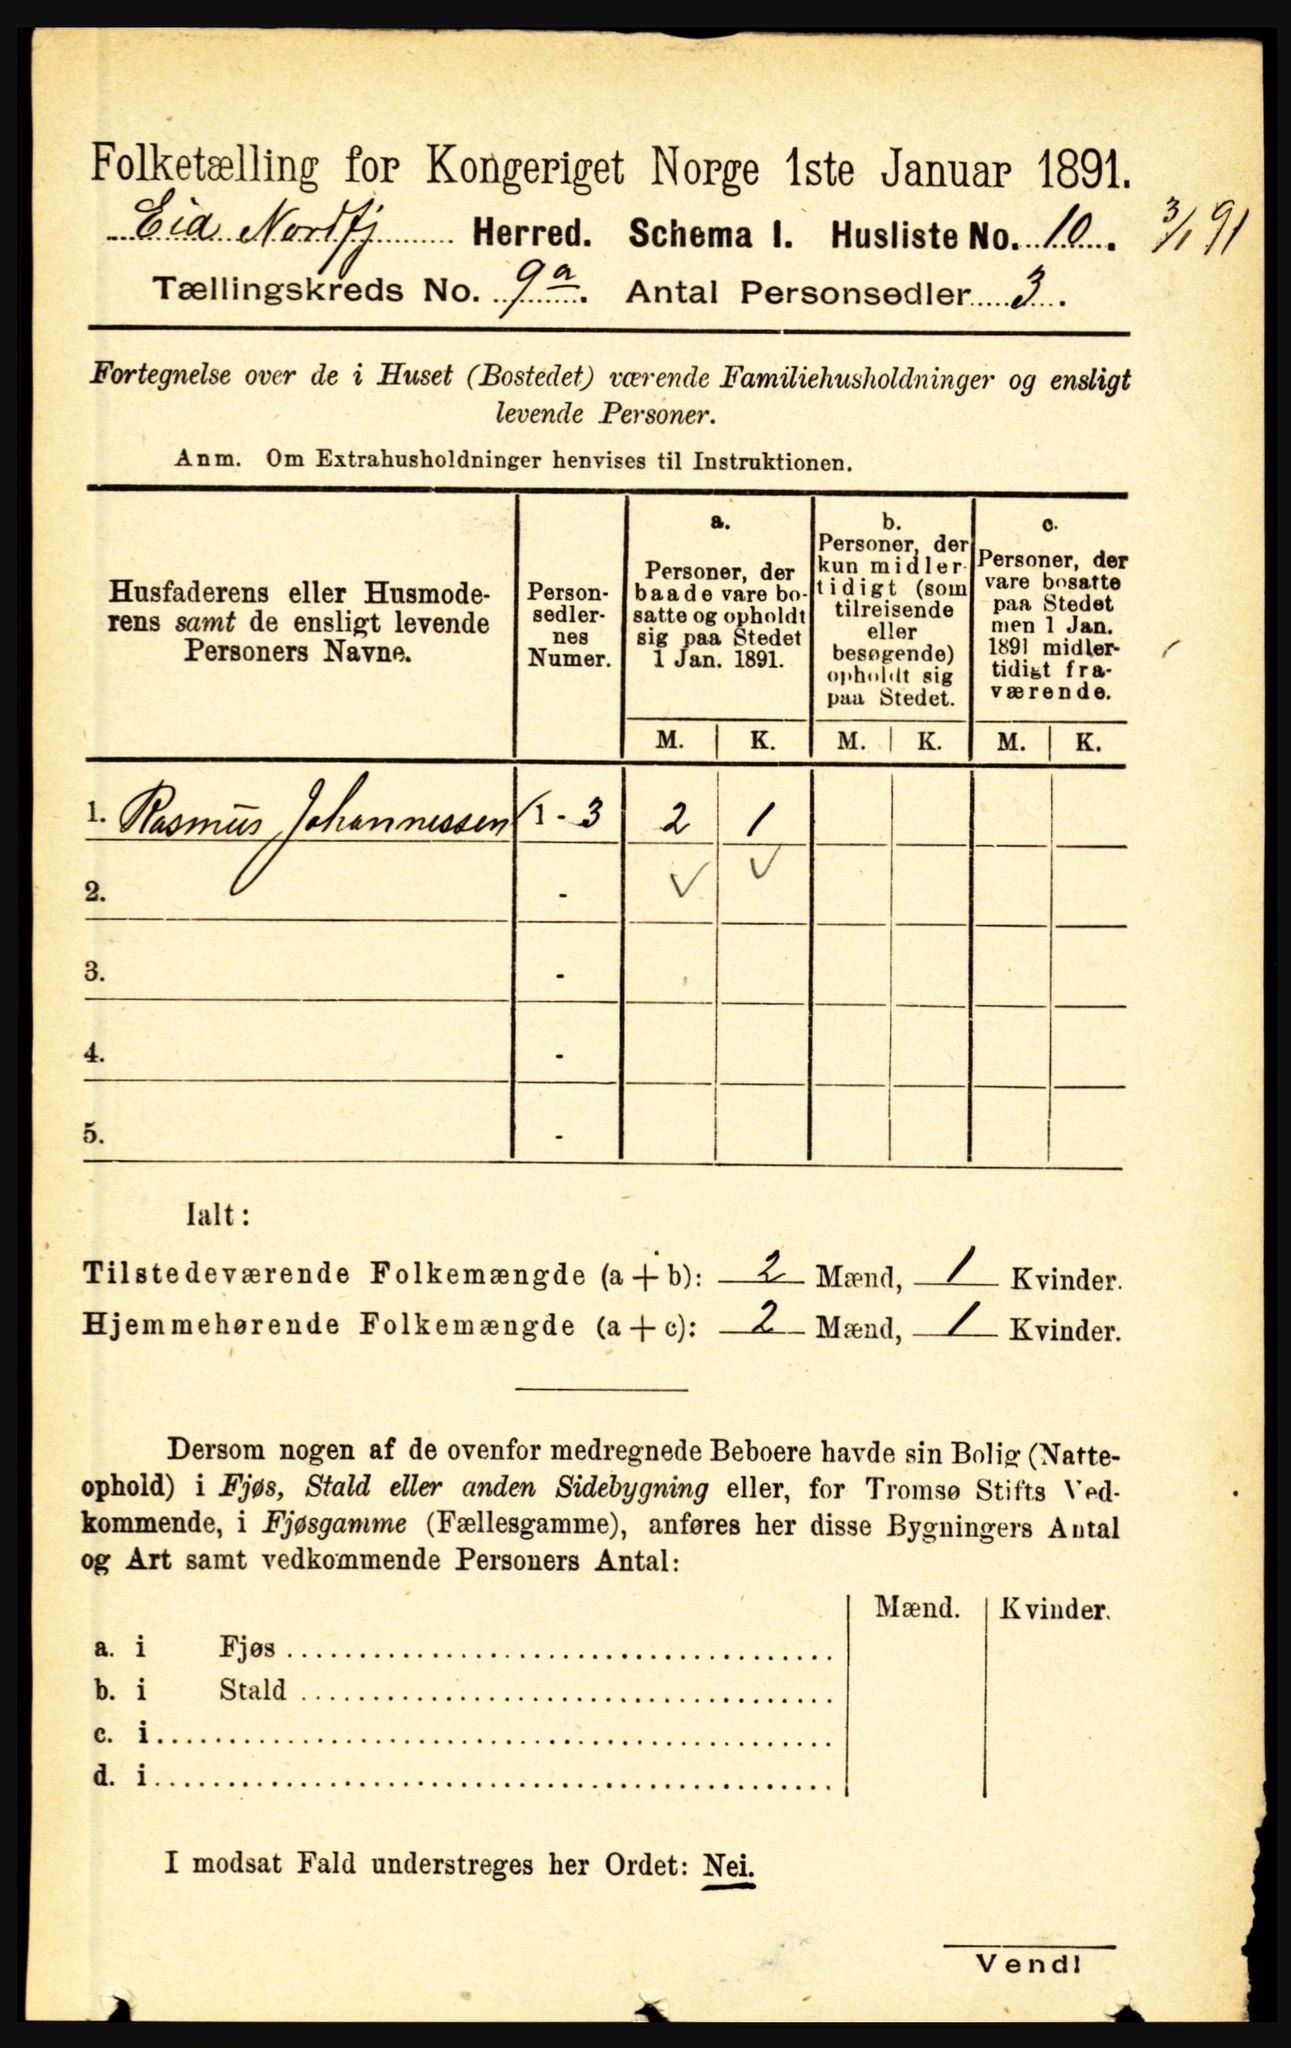 Folketælling for Kongeriget Norge 1ste Januar 1891.
Eid Nordfj Herred. Schema I. Husliste No. 10. 3/1 91
Tællingskreds No. 9a. Antal Personsedler 3.
Fortegnelse over de i Huset (Bostedet) værende Familiehusholdninger og ensligt
levende Personer.
Anm. Om Extrahusholdninger henvises til Instruktionen.
Husfaderens eller Husmode-
rens samt de ensligt levende
Personers Navne.
Person-
sedler-
nes
Numer.
a.
Personer, der
baade vare bo-
satte og opholdt
sig paa Stedet
1 Jan. 1891.
b.
Personer, der
kun midler-
tidigt (som
tilreisende
eller
besøgende)
opholdt sig
paa Stedet.
c.
Personer, der
vare bosatte
paa Stedet
men 1 Jan.
1891 midler-
tidigt fra-
værende.
M. K. M. K. M. K.
1. Rasmus Johannessen 1 - 3 2 1
2. -
3. -
4. -
5. -
Ialt:
Tilstedeværende Folkemængde (a + b): 2 Mænd, 1 Kvinder.
Hjemmehørende Folkemængde (a + c): 2 Mænd, 1 Kvinder.
Dersom nogen af de ovenfor medregnede Beboere havde sin Bolig (Natte-
ophold) i Fjøs, Stald eller anden Sidebygning eller, for Tromsø Stifts Ved-
kommende, i Fjøsgamme (Fællesgamme), anføres her disse Bygningers Antal
og Art samt vedkommende Personers Antal:
Mænd. Kvinder.
a. i Fjøs
b. i Stald
c. i
d. i
I modsat Fald understreges her Ordet: Nei.
Vend!